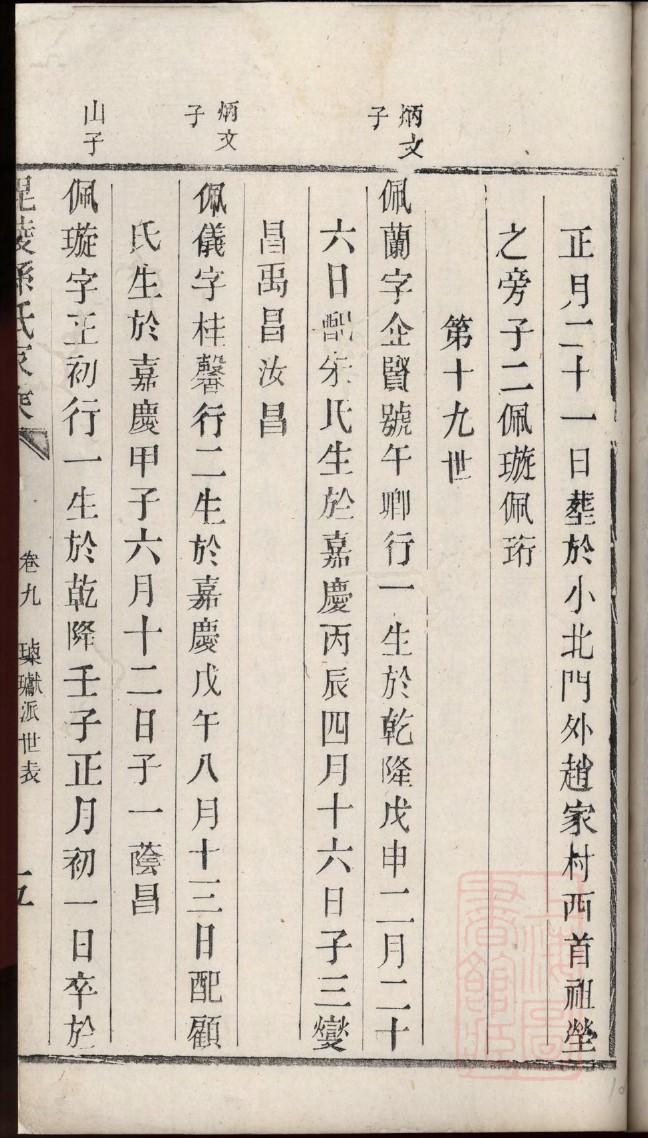 正月二十一日葬於小北門外趙家村西首祖塋
之旁子二佩璇佩珩
第十九世
炳文子
佩蘭字企賢號午卿行一生於乾隆戊申二月二十
六日配朱氏生於嘉慶丙辰四月十六日子三燮
昌禹昌汝昌
炳文子
佩儀字桂馨行二生於嘉慶戊午八月十三日配顧
氏生於嘉慶甲子六月十二日子一蔭昌
山子
佩璇字正初行一生於乾隆壬子正月初一日卒於
毘陵孫氏家乘
卷九
派世表
五
上海圖書館藏